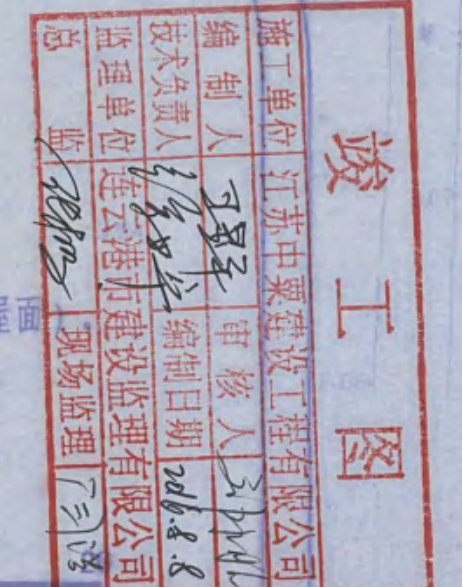 竣工图
施工单位 江苏中粟建设工程有限公司
编制人 审核人
技术负责人 编制日期 2016.8.8
监理单位 连云港市建设监理有限公司
总监 现场监理
屋面